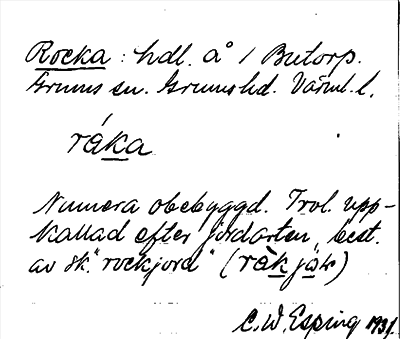 Rocka : hdl. å 1 Butorp.
Grums sn. Grums hd. Värml. l.
råka
Numera obebyggd. Trol. upp-
kallad efter jordarten, best.
av sk. "rockjord" (råk jår)
C.W. Esping 1931.